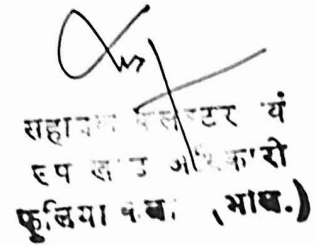 सहायक कलक्टर यं
उप खण्ड अधिकारी
फुलिया कलां (भील.)